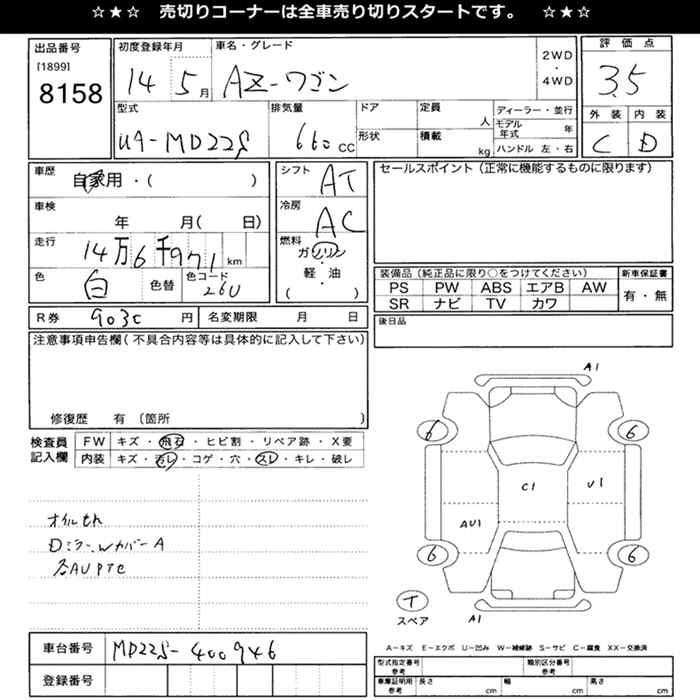 ☆★☆ 売切りコーナーは全車売り切りスタートです。 ☆★☆
出品番号
[1899]
8158
初度登録年月
14 5月
車名・グレード
AZ-ワゴン
2WD
・
4WD
評価点
3.5
外装 内装
C D
型式
UA-MD22S
排気量
660 CC
ドア
形状
定員
人
積載
kg
ディーラー・並行
モデル年式 年
ハンドル 左・右
車歴
自家用・( )
車検
年 月( 日)
走行
14万6千971km
色
白
色替
色コード
26U
シフト
AT
冷房
AC
燃料
ガソリン
・
軽・油
( )
セールスポイント(正常に機能するものに限ります)
装備品(純正品に限り○をつけてください)
PS PW ABS エアB AW
SR ナビ TV カワ
新車保証書
有・無
R券 9030 円
名変期限 月 日
後日品
注意事項申告欄(不具合内容等は具体的に記入して下さい)
修復歴 有 (箇所 )
検査員
記入欄
FW キズ・飛石・ヒビ割・リペア跡・X要
内装 キズ・汚レ・コゲ・穴・スレ・キレ・破レ
オイルもれ
DミラーWカバーA
各AUPTC
A1
6
6
C1
U1
AU1
6
6
T
スペア
A1
A-キズ E-エクボ U-凹み W-補修跡 S-サビ C-腐食 XX-交換済
車台番号
MD22S-400946
登録番号
型式指定番号
参考
類別区分番号
参考
車庫証明用
参考
長さ cm
幅 cm
高さ cm